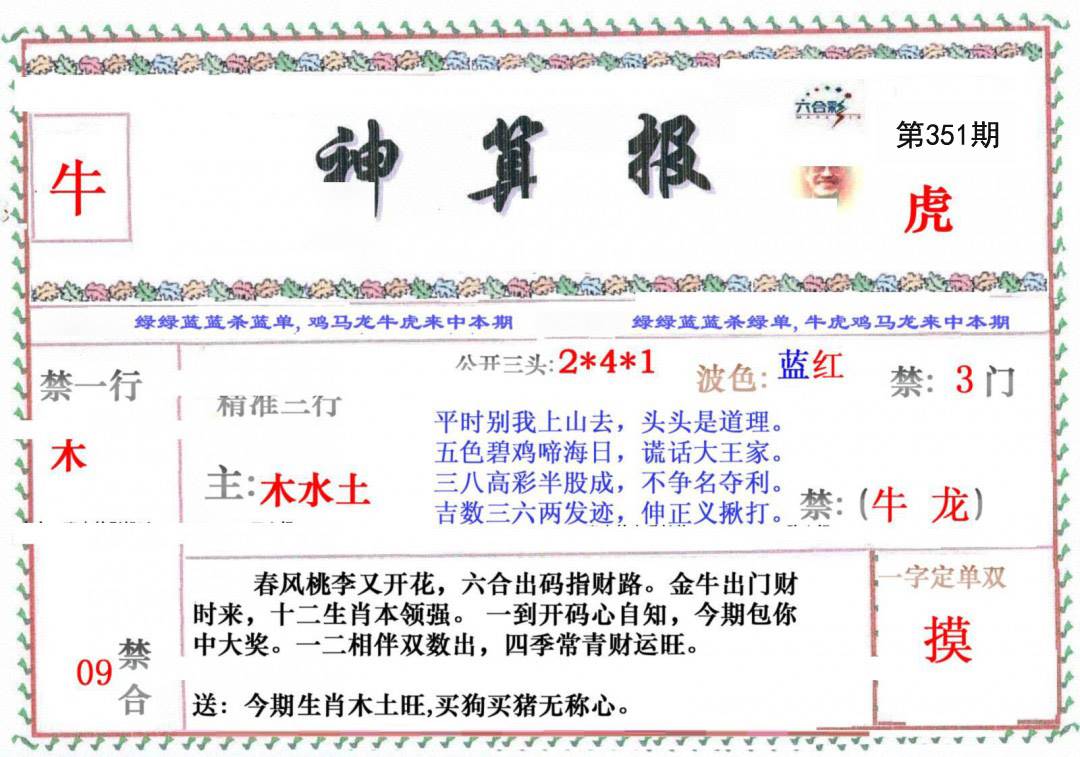 六合彩
第351期
牛
神算报
虎
绿绿蓝蓝杀蓝单,鸡马龙牛虎来中本期
绿绿蓝蓝杀绿单,牛虎鸡马龙来中本期
公开三头:2*4*1
波色:蓝红
禁:3门
禁一行
精准三行
木
主:木水土
平时别我上山去，头头是道理。
五色碧鸡啼海日，谎话大王家。
三八高彩半股成，不争名夺利。
吉数三六两发迹，伸正义揪打。
禁:(牛 龙)
春风桃李又开花，六合出码指财路。金牛出门财
时来，十二生肖本领强。一到开码心自知，今期包你
中大奖。一二相伴双数出，四季常青财运旺。
送：今期生肖木土旺,买狗买猪无称心。
09禁合
一字定单双
摸